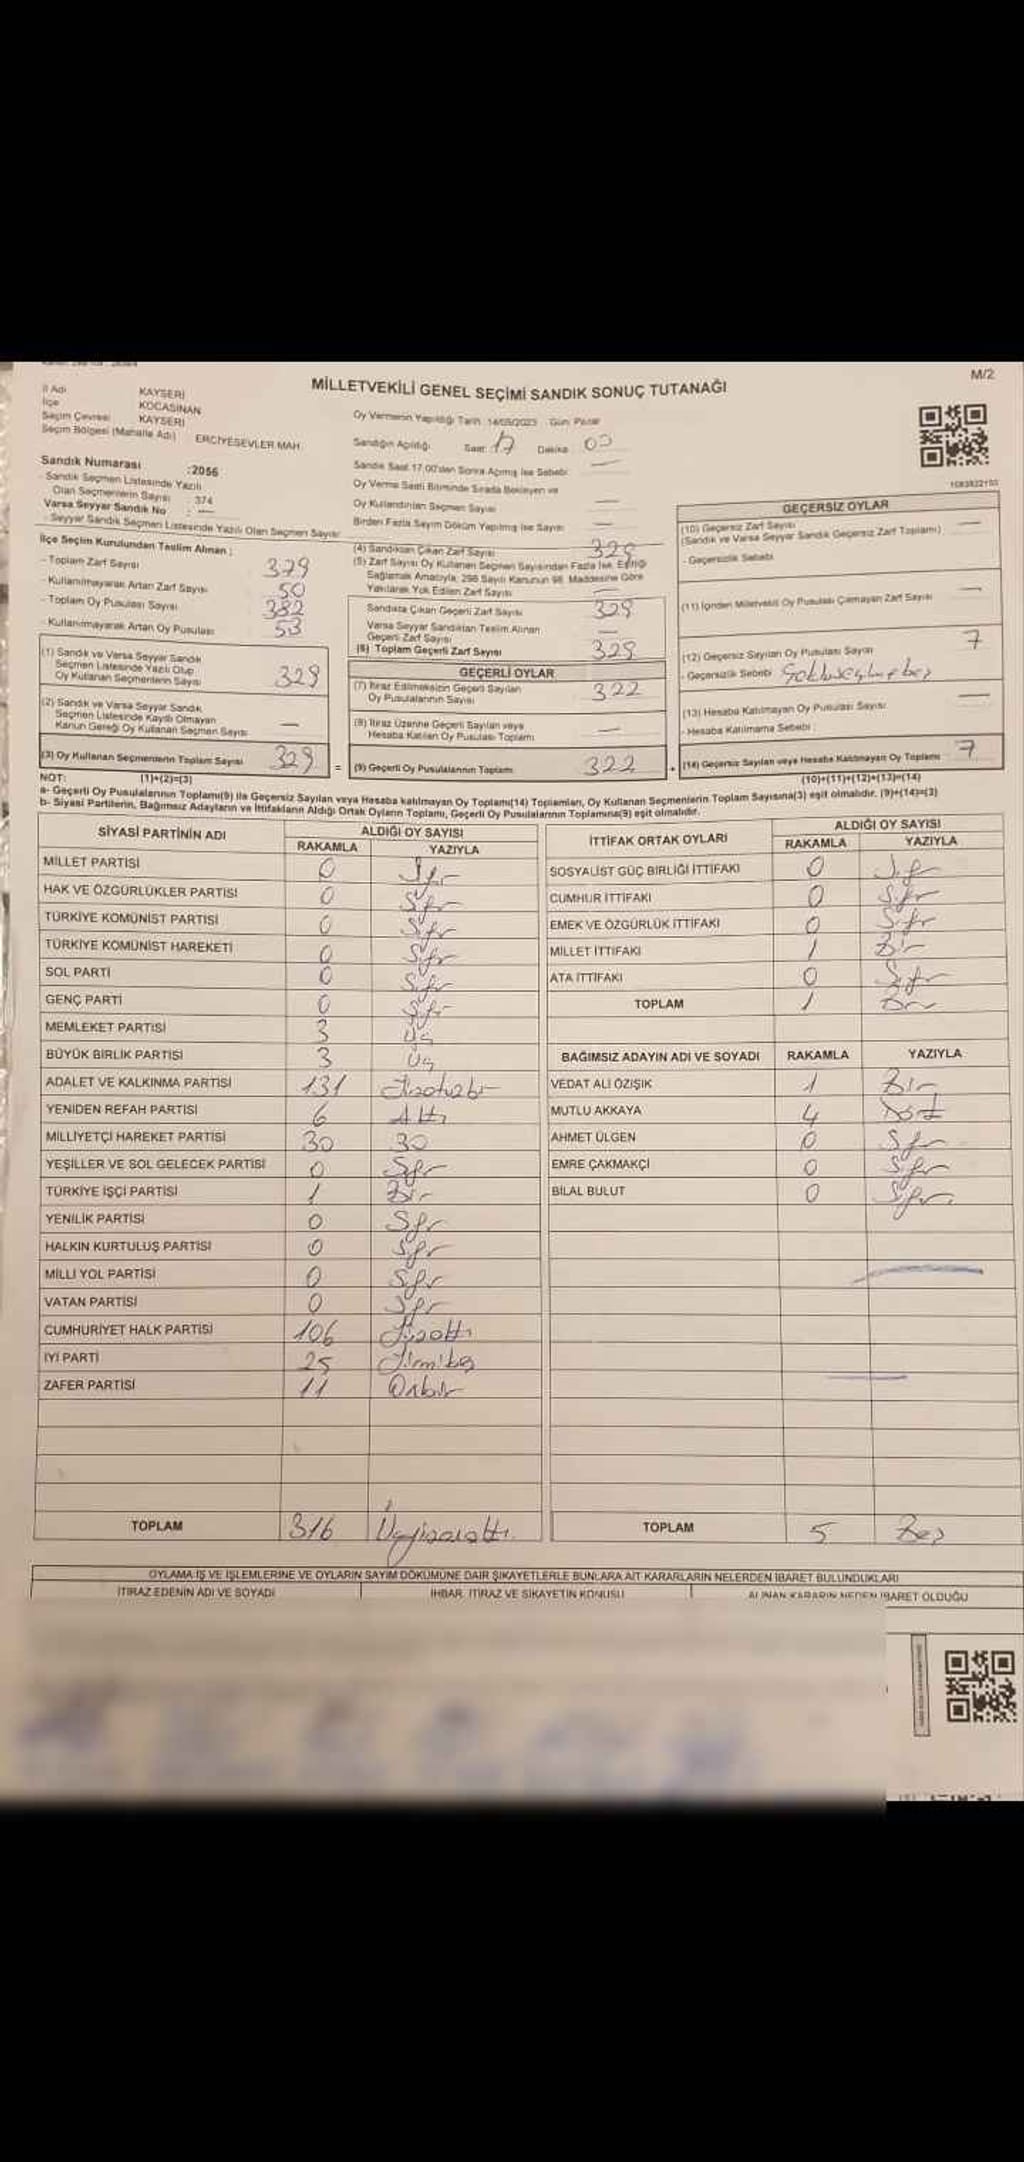 M/2
MİLLETVEKİLİ GENEL SEÇİMİ SANDIK SONUÇ TUTANAĞI
İl Adı KAYSERİ
İlçe KOCASİNAN
Seçim Çevresi KAYSERİ
Seçim Bölgesi (Mahalle Adı) ERCİYESEVLER MAH.
Sandık Numarası :2056
- Sandık Seçmen Listesinde Yazılı
Olan Seçmenlerin Sayısı : 374
Varsa Seyyar Sandık No : —
- Seyyar Sandık Seçmen Listesinde Yazılı Olan Seçmen Sayısı
İlçe Seçim Kurulundan Teslim Alınan :
- Toplam Zarf Sayısı 379
- Kullanılmayarak Artan Zarf Sayısı 50
- Toplam Oy Pusulası Sayısı 382
- Kullanılmayarak Artan Oy Pusulası 53
(1) Sandık ve Varsa Seyyar Sandık
Seçmen Listesinde Yazılı Olup
Oy Kullanan Seçmenlerin Sayısı 329
(2) Sandık ve Varsa Seyyar Sandık
Seçmen Listesinde Kayıtlı Olmayan
Kanun Gereği Oy Kullanan Seçmen Sayısı —
(3) Oy Kullanan Seçmenlerin Toplam Sayısı 329 =
Oy Vermenin Yapıldığı Tarih :14/05/2023 Gün: Pazar
Sandığın Açıldığı Saat: 17 Dakika 00
Sandık Saat 17.00'den Sonra Açılmış İse Sebebi —
Oy Verme Saati Bitiminde Sırada Bekleyen ve
Oy Kullandırılan Seçmen Sayısı —
Birden Fazla Sayım Döküm Yapılmış İse Sayısı —
(4) Sandıktan Çıkan Zarf Sayısı 329
(5) Zarf Sayısı Oy Kullanan Seçmen Sayısından Fazla İse, Eşitliği
Sağlamak Amacıyla, 298 Sayılı Kanunun 98. Maddesine Göre
Yakılarak Yok Edilen Zarf Sayısı —
Sandıkta Çıkan Geçerli Zarf Sayısı 329
Varsa Seyyar Sandıktan Teslim Alınan
Geçerli Zarf Sayısı —
(6) Toplam Geçerli Zarf Sayısı 329
GEÇERLİ OYLAR
(7) İtiraz Edilmeksizin Geçerli Sayılan
Oy Pusulalarının Sayısı 322
(8) İtiraz Üzerine Geçerli Sayılan veya
Hesaba Katılan Oy Pusulası Toplamı —
(9) Geçerli Oy Pusulalarının Toplamı 322 +
1083822150
GEÇERSİZ OYLAR
(10) Geçersiz Zarf Sayısı —
(Sandık ve Varsa Seyyar Sandık Geçersiz Zarf Toplamı)
- Geçersizlik Sebebi
(11) İçinden Milletvekili Oy Pusulası Çıkmayan Zarf Sayısı —
(12) Geçersiz Sayılan Oy Pusulası Sayısı 7
- Geçersizlik Sebebi
(13) Hesaba Katılmayan Oy Pusulası Sayısı —
- Hesaba Katılmama Sebebi :
(14) Geçersiz Sayılan veya Hesaba Katılmayan Oy Toplamı 7
NOT: (1)+(2)=(3) (10)+(11)+(12)+(13)=(14)
a- Geçerli Oy Pusulalarının Toplamı(9) ile Geçersiz Sayılan veya Hesaba katılmayan Oy Toplamı(14) Toplamları, Oy Kullanan Seçmenlerin Toplam Sayısına(3) eşit olmalıdır. (9)+(14)=(3)
b- Siyasi Partilerin, Bağımsız Adayların ve İttifakların Aldığı Ortak Oyların Toplamı, Geçerli Oy Pusulalarının Toplamına(9) eşit olmalıdır.
SİYASİ PARTİNİN ADI ALDIĞI OY SAYISI
RAKAMLA YAZIYLA
MİLLET PARTİSİ 0 Sıfır
HAK VE ÖZGÜRLÜKLER PARTİSİ 0 Sıfır
TÜRKİYE KOMÜNİST PARTİSİ 0 Sıfır
TÜRKİYE KOMÜNİST HAREKETİ 0 Sıfır
SOL PARTİ 0 Sıfır
GENÇ PARTİ 0 Sıfır
MEMLEKET PARTİSİ 3 Üç
BÜYÜK BİRLİK PARTİSİ 3 Üç
ADALET VE KALKINMA PARTİSİ 131
YENİDEN REFAH PARTİSİ 6 Altı
MİLLİYETÇİ HAREKET PARTİSİ 30 30
YEŞİLLER VE SOL GELECEK PARTİSİ 0 Sıfır
TÜRKİYE İŞÇİ PARTİSİ 1 Bir
YENİLİK PARTİSİ 0 Sıfır
HALKIN KURTULUŞ PARTİSİ 0 Sıfır
MİLLİ YOL PARTİSİ 0 Sıfır
VATAN PARTİSİ 0 Sıfır
CUMHURİYET HALK PARTİSİ 106 Yüzaltı
İYİ PARTİ 25 Yirmibeş
ZAFER PARTİSİ 11 Onbir
TOPLAM 316
İTTİFAK ORTAK OYLARI ALDIĞI OY SAYISI
RAKAMLA YAZIYLA
SOSYALİST GÜÇ BİRLİĞİ İTTİFAKI 0 Sıfır
CUMHUR İTTİFAKI 0 Sıfır
EMEK VE ÖZGÜRLÜK İTTİFAKI 0 Sıfır
MİLLET İTTİFAKI 1 Bir
ATA İTTİFAKI 0 Sıfır
TOPLAM 1 Bir
BAĞIMSIZ ADAYIN ADI VE SOYADI RAKAMLA YAZIYLA
VEDAT ALİ ÖZIŞIK 1 Bir
MUTLU AKKAYA 4 Dört
AHMET ÜLGEN 0 Sıfır
EMRE ÇAKMAKÇİ 0 Sıfır
BİLAL BULUT 0 Sıfır
TOPLAM 5 Beş
OYLAMA İŞ VE İŞLEMLERİNE VE OYLARIN SAYIM DÖKÜMÜNE DAİR ŞİKAYETLERLE BUNLARA AİT KARARLARIN NELERDEN İBARET BULUNDUKLARI
İTİRAZ EDENİN ADI VE SOYADI İHBAR, İTİRAZ VE ŞİKAYETİN KONUSU ALINAN KARARIN NEDEN İBARET OLDUĞU